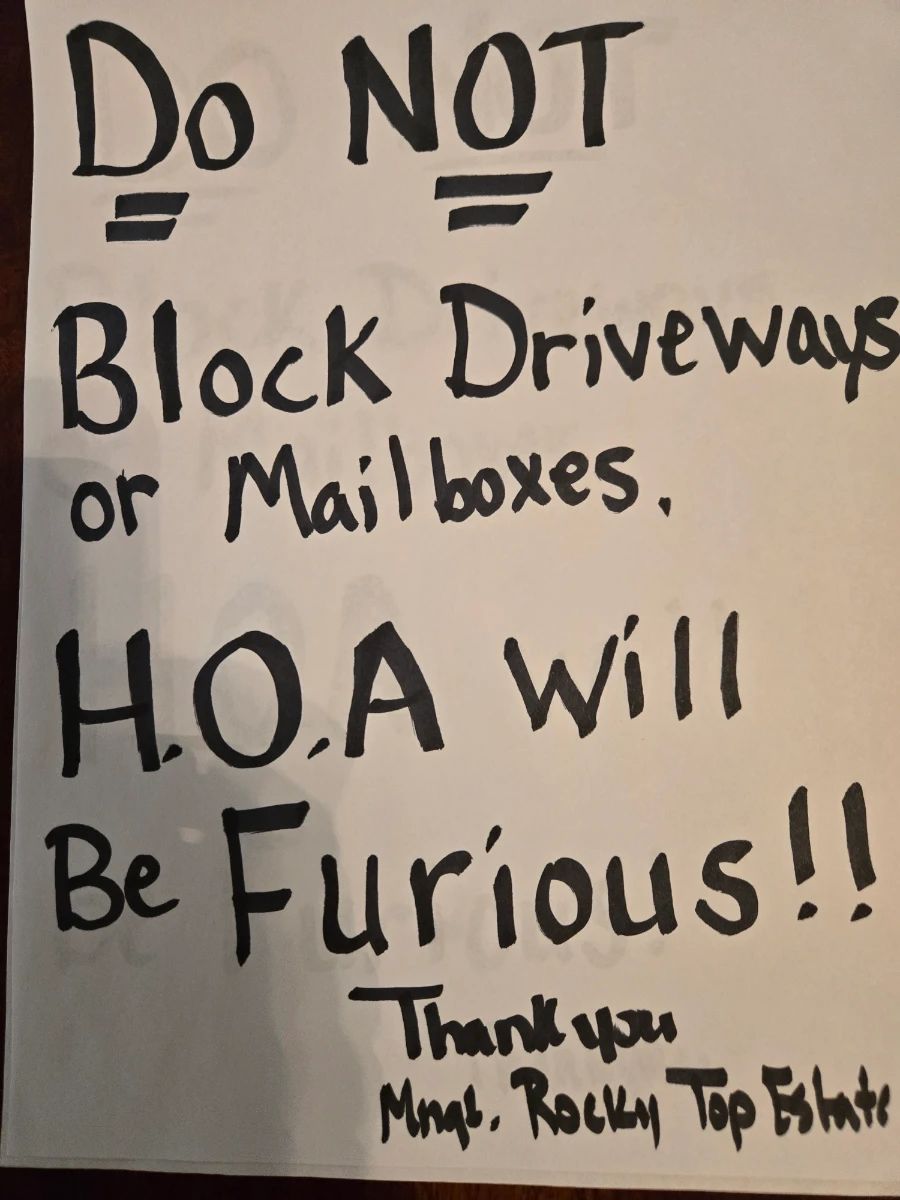 Do NOT
Block Driveways
or Mailboxes.
H.O.A Will
Be Furious!!
Thank you
Mngt. Rocky Top Estate